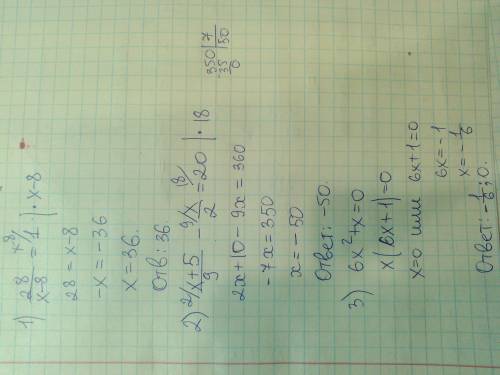 1) 28/x-8 = 1 | · x-8
28 = x-8
-x = -36
x = 36.
Отв: 36.
2) 2/ x+5/9 - 9/ x/2 = 18/ 20 | · 18
2x+10-9x=360
-7x=350
x=-50
Ответ: -50.
350 | 7
-35 | 50
0
3) 6x²+x=0
x(6x+1)=0
x=0 или 6x+1=0
6x=-1
x=-1/6
Ответ: -1/6; 0.